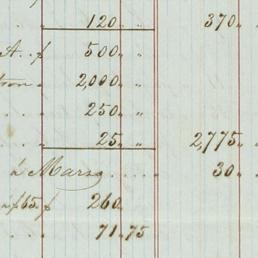 120 „ 370 „
A . . f 500 „ „
2,000 „
. . . 250 „
. . . 25 „ „ 2,775 „
á Marsg . . . . . 30 „
f 65 f 260 „
. . 71 „ 75